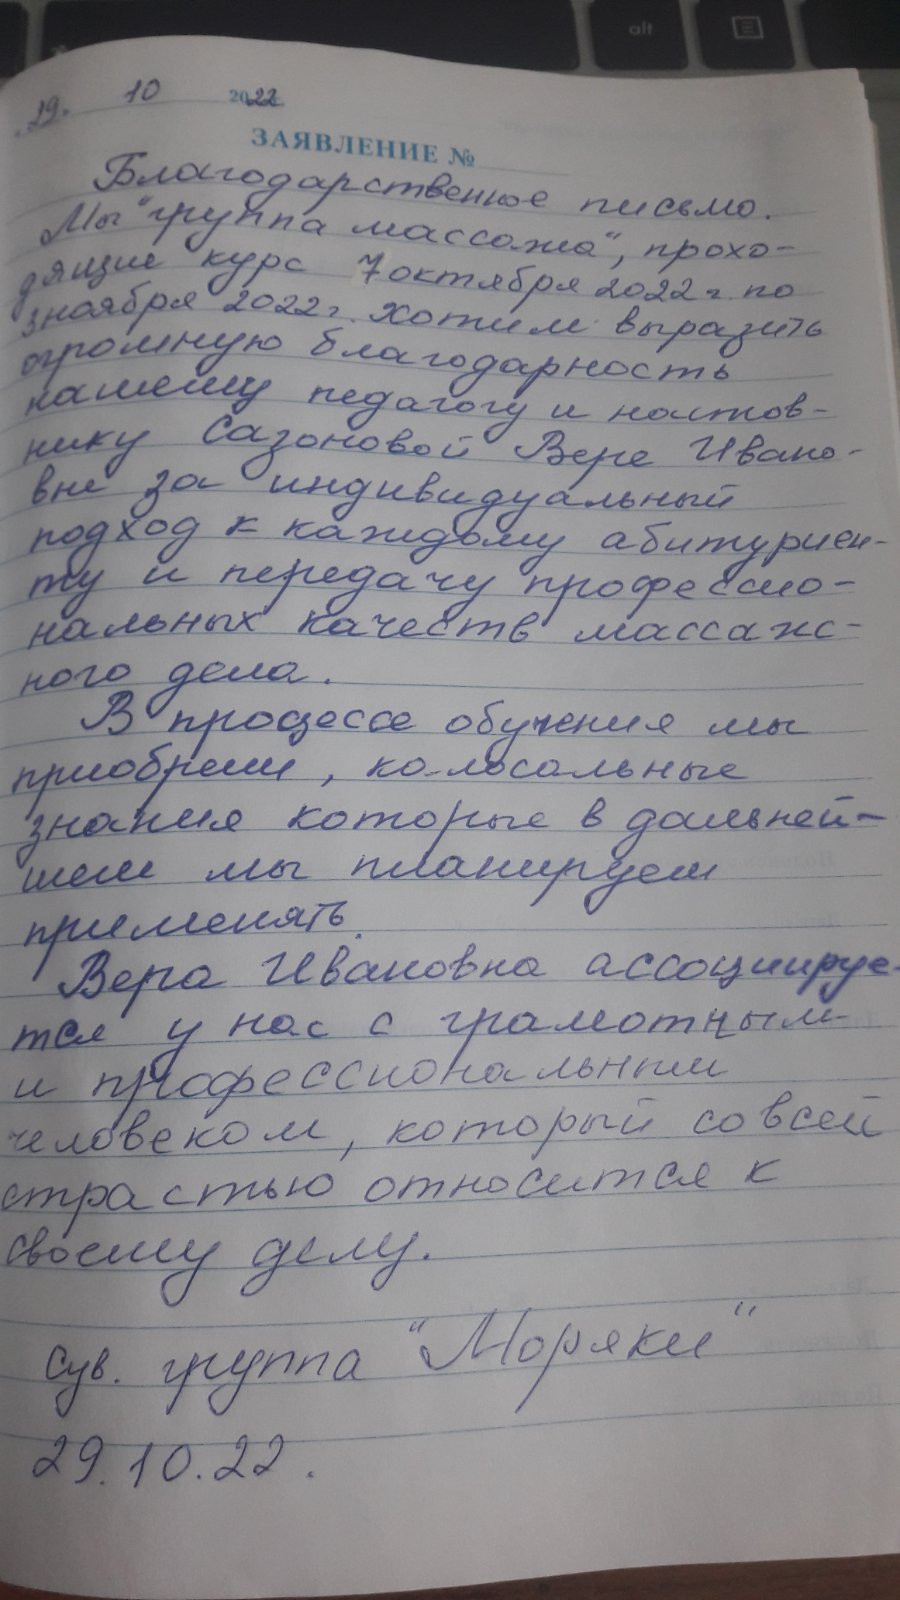 29. 10 2022
ЗАЯВЛЕНИЕ №
Благодарственное письмо.
Мы "группа массажа", прохо-
дящие курс 7 октября 2022 г. по
3 ноября 2022 г. хотим выразить
огромную благодарность
нашему педагогу и настав-
нику Сазоновой Вере Ивано-
вне за индивидуальный
подход к каждому абитуриен-
ту и передачу профессио-
нальных качеств массаж-
ного дела.
В процессе обучения мы
приобрели, колосальные
знания которые в дальней-
шем мы планируем
применять.
Вера Ивановна ассоциируе-
тся у нас с грамотным
и профессиональным
человеком, который со всей
страстью относится к
своему делу.
Сув. группа "Моряки"
29.10.22.
alt